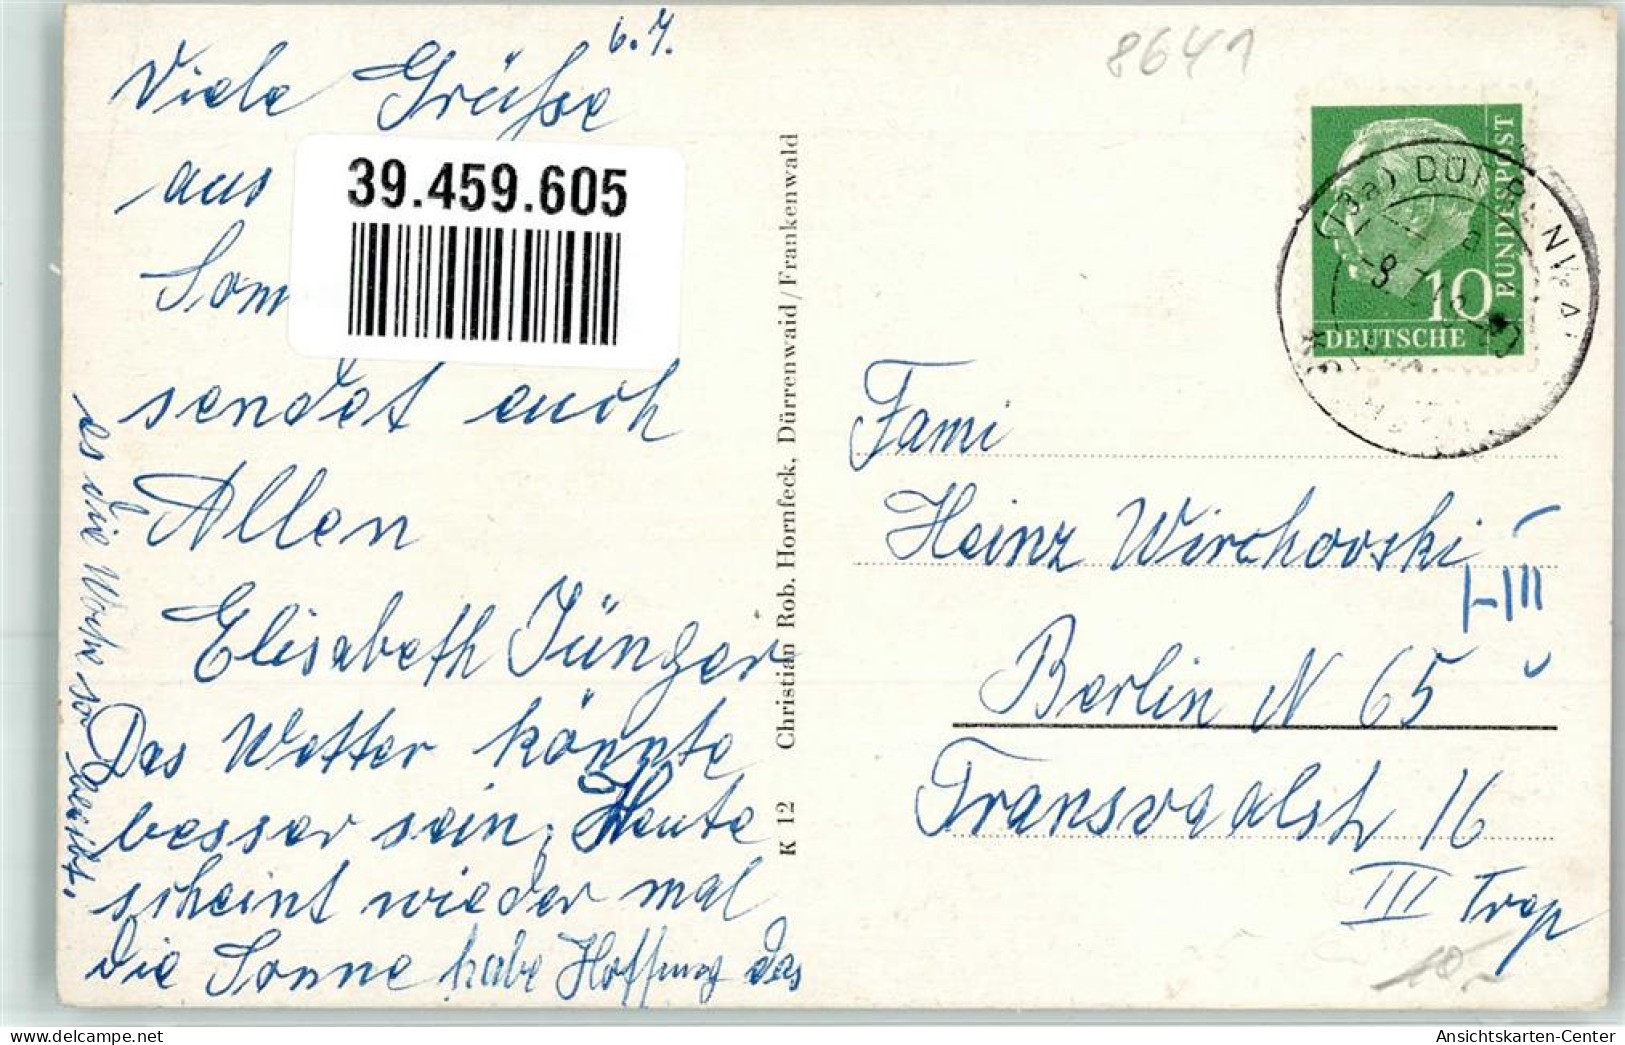 6.7.
Viele Grüße
aus
Som
sendet euch
Allen
Elisabeth Jünger
Das Wetter könnte
besser sein, Heute
scheint wieder mal
die Sonne habe Hoffnung das
es die Woche so
bleibt.
39.459.605
K 12 Christian Rob. Hornfeck, Dürrenwaid/Frankenwald
8641
DEUTSCHE
BUNDESPOST
10
(13a) DÜRRENWAI
Fami
Heinz Wirchovski
I-III
Berlin N 65
Transvaalstr 16
III Trep
10.-
Ansichtskarten-Center